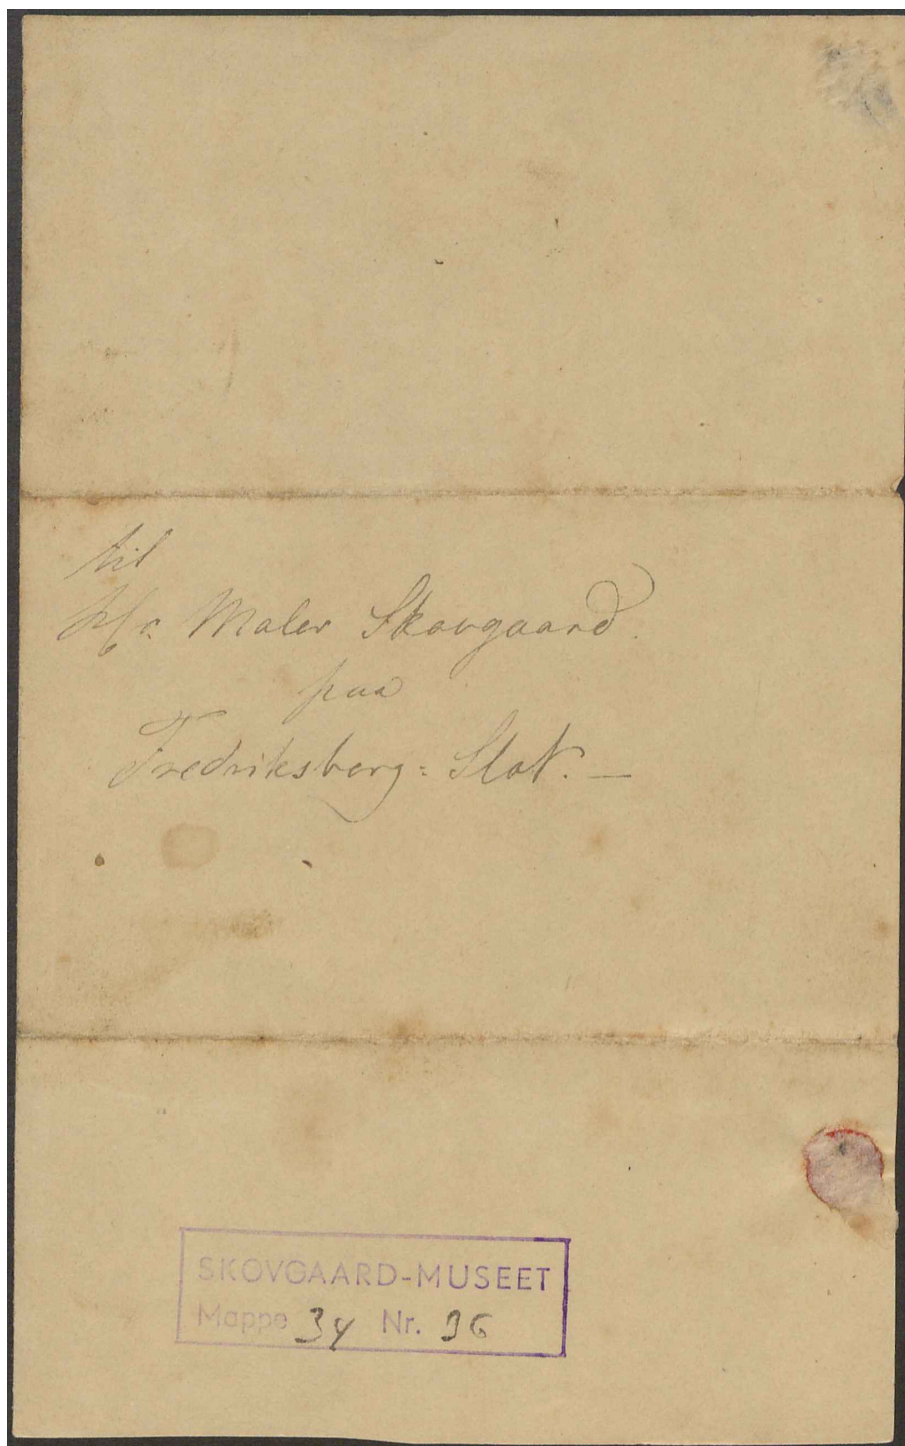 til
Hr. Maler Skovgaard.
paa
Fredriksberg = Slot. —
SKOVGAARD-MUSEET
Mappe 34 Nr. 36